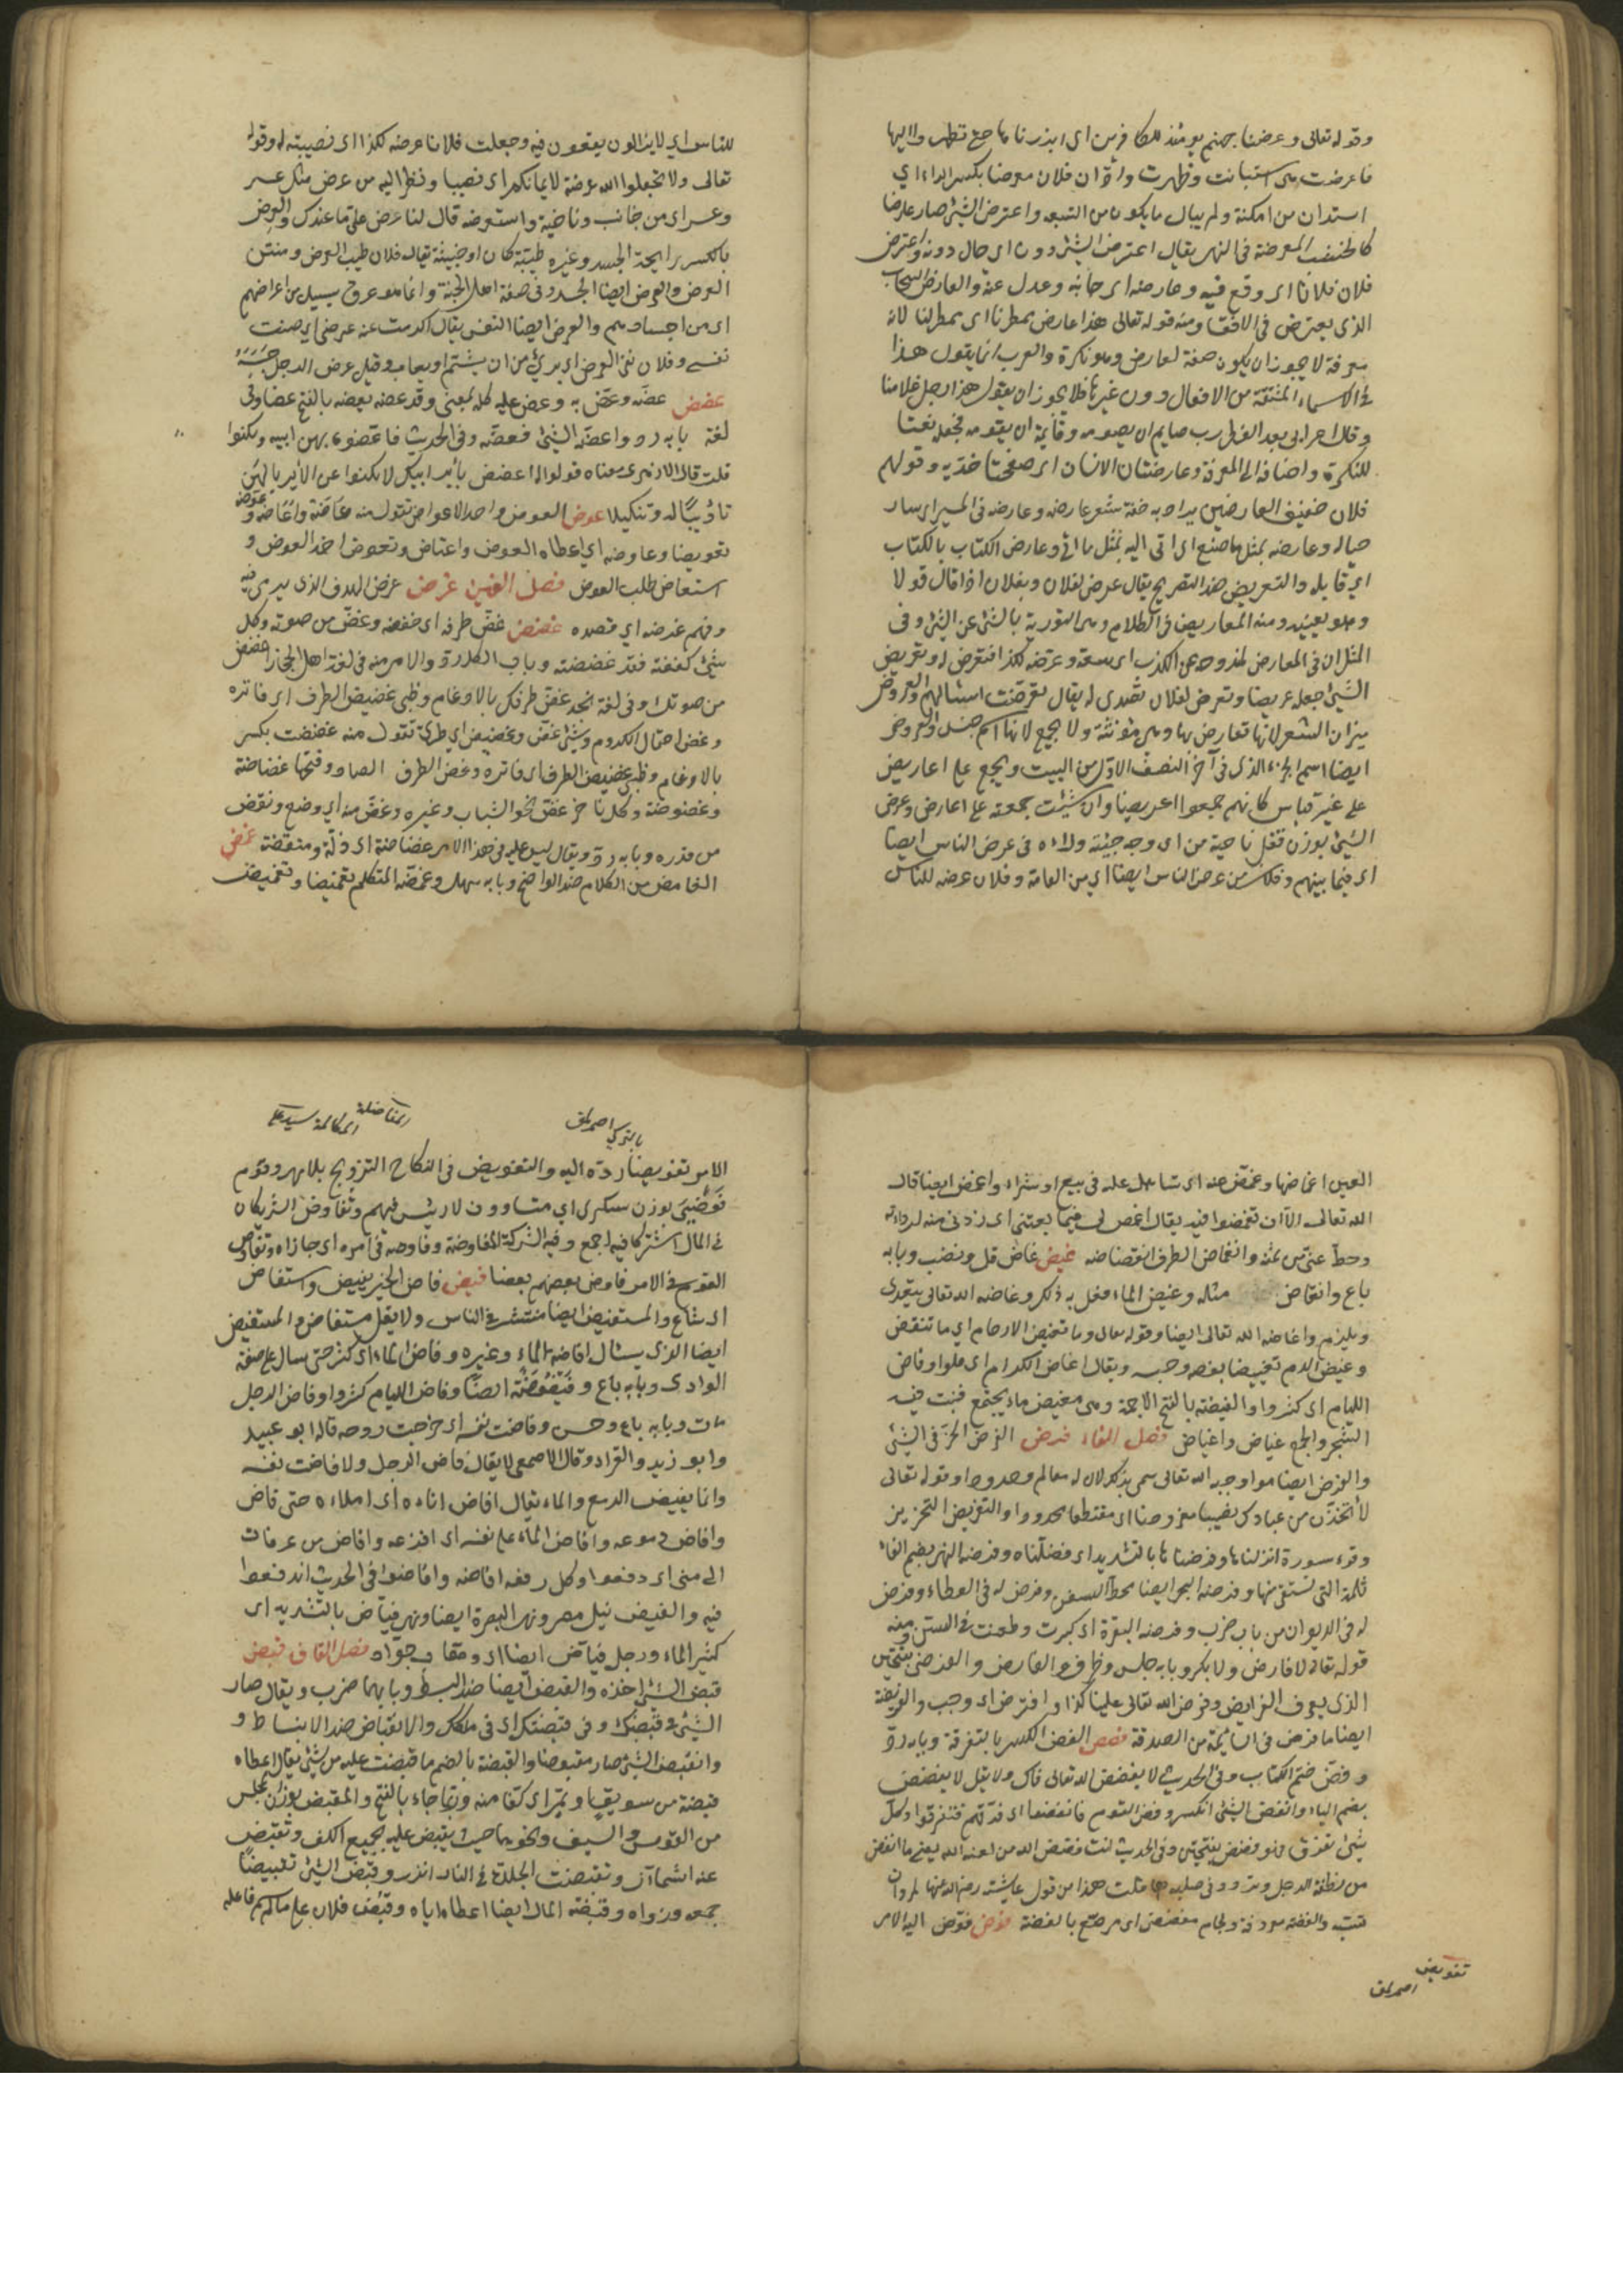 وقوله تعالى وعرضنا جهنم يومئذ للكافرين اى ابرزناها حتى نظروا اليها
فاعرضت هى استبانت وظهرت وادّان فلان معرضا بكسر الراء اي
استدان من امكنه ولم يبال ما يكون من التبعه واعترض الشئ صار عارضا
كالخشبة المعترضة فى النهر يقال اعترض الشئ دون اي حال دونه واعترض
فلان فلانا اى وقع فيه وعارضه اى جانبه وعدل عنه والعارض السحاب
الذى يعترض فى الافق ومنه قوله تعالى هذا عارض ممطرنا اى ممطر لنا لانه
معرفة لا يجوز ان يكون صفة لعارض وهو نكرة والعرب انما يقول هذا
فى الاسماء المشتقة من الافعال دون غيرها فلا يجوز ان يقول هذا رجل غلامنا
وقال اعرابى بعد الفطر رب صايم ان يصومه وقايم ان يقومه فجعله نعتا
للنكرة واضافه الى المعرفة وعارضتا الانسان اى صفحتا خديه وقولهم
فلان خفيف العارضين يراد به خفة شعر عارضه وعارضه فى المسير اى سار
حياله وعارضه بمثل ما صنع اى اتى اليه بمثل ما اتى وعارض الكتاب بالكتاب
اي قابله والتعريض ضد التصريح يقال عرض لفلان وبفلان اذا قال قولا
وهو يعنيه ومنه المعاريض فى الكلام وهى التورية بالشئ عن الشئ وفى
المثل ان فى المعارض لمندوحة عن الكذب اى سعة وعرضه لكذا فتعرض له وتعريض
الشئ جعله عريضا وتعرض لفلان تصدى له يقال تعرضت اسئالهم والعروض
ميزان الشعر لانها تعارض بها وهى مؤنثة ولا تجمع لانها اسم جنس والعروض
ايضا اسم الجزء الذى فى آخر النصف الاول من البيت ويجمع على اعاريض
على غير قياس كانهم جمعوا اعريضا وان شئت جمعته على اعارض وعرض
الشئ بوزن قفل ناحيته من اى وجه جئته ورآه فى عرض الناس ايضا
اى فيما بينهم وفلان من عرض الناس ايضا اي من العامة وفلان عرضه للناس
للناس اي لا يزالون يقعون فيه وجعلت فلانا عرضه لكذا اى نصبته له وقوله
تعالى ولا تجعلوا الله عرضة لايمانكم اى نصبا ونظر اليه من عرض مثل عسر
وعسر اى من جانب وناحية واستعرضه قال له اعرض على ما عندك والعرض
بالكسر رايحة الجسد وغيره طيبة كان او خبيثة يقال فلان طيب العرض ومنتن
العرض والعرض ايضا الجسد وفى صفة اهل الجنة وانما هو عرق يسيل من اعراضهم
اى من اجسادهم والعرض ايضا النفس يقال اكرمت عنه عرضى اي صنت
نفسى وفلان نقى العرض اى برئ من ان يشتم او يعاب وقيل عرض الرجل حسبه
عضض عضه وعض به وعض عليه كله بمعنى وقد عضه يعضه بالفتح عضا وفى
لغة بابه رد واعضه الشئ فعضه وفى الحديث فاعضوه بهن ابيه ولا تكنوا
قلت قال الازهرى معناه قولوا له اعضض بأير ابيك ولا تكنوا عن الأير بالهن
تأديبا له وتنكيلا عوض العوض واحد الاعواض تقول منه عاضه واعاضه وعوضه
تعويضا وعاوضه اي اعطاه العوض واعتاض وتعوض اخذ العوض و
استعاض طلب العوض فصل الغين غرض غرض الهدف الذى يرمى فيه
وفهم غرضه اي قصده غضض غض طرفه اى خفضه وغض من صوته وكل
شئ كففته فقد غضضته وباب الكل رد والامر منه فى لغة اهل الحجاز اغضض
من صوتك وفى لغة نجد غض طرفك بالادغام وظبى غضيض الطرف اى فاتره
وغض احتمال المكروه وشئ غض وغضيض اي طرى تقول منه غضضت بكسر
بالادغام وظبى غضيض الطرف اى فاتره وغض الطرف الضاد وفتحها غضاضة
وغضوضة وكل ناضر غض نحو الشباب وغيره وغض منه اي وضع ونقص
من قدره وبابه رد ويقال ليس عليه فى هذا الامر غضاضة اى ذلة ومنقصة غمض
الغامض من الكلام ضد الواضح وبابه سهل وغمضه المتكلم تغميضا وتغميض
العين اغماضها وغمض عنه اى تساهل عليه فى بيع او شراء واغمض ايضا قال
الله تعالى الا ان تغمضوا فيه يقال اغمض لى فيما بعتنى اى زدنى منه لرداءته
وحط عنى من ثمنه وانغماض الطرف انغضاضه غيض غاض قل ونضب وبابه
باع وانغاض مثله وغيض الماء فعل به ذلك وغاضه الله تعالى يتعدى
ويلزم واغاضه الله تعالى ايضا وقوله تعالى وما تغيض الارحام اي ما تنقص
وغيض الدم تغييضا نقصه وحبسه ويقال غاض الكرام اى قلوا وفاض
اللئام اى كثروا والغيضة بالفتح الاجمة وهى مغيض ماء يجتمع فينبت فيه
الشجر والجمع غياض واغياض فصل الفاء فرض الفرض الحز فى الشئ
والفرض ايضا ما اوجبه الله تعالى سمى بذلك لان له معالم وحدودا وقوله تعالى
لأتخذن من عبادك نصيبا مفروضا اى مقتطعا محدودا والتفريض التحزيز
وقرء سورة انزلناها وفرضناها بالتشديد اى فصلناه وفرضة النهر بضم الفاء
ثلمته التى يستقى منها وفرضة البحر ايضا محط السفن وفرض له فى العطاء وفرض
له فى الديوان من باب ضرب وفرضت البقرة اى كبرت وطعنت فى السن ومنه
قوله تعالى لا فارض ولا بكر وبابه جلس وظرف والفارض والفرضى بفتحتين
الذى يعرف الفرايض وفرض الله تعالى علينا كذا وافترض اى وجب والفريضة
ايضا ما فرض فى السائمة من الصدقة فضض الفض الكسر بالتفرقة وبابه رد
وفض ختم الكتاب وفى الحديث لا يفضض الله تعالى فاك ولا يقل لا يفضض
بضم الياء وانفض الشئ انكسر وفض القوم فانفضوا اى فرقهم فتفرقوا وكل
شئ تفرق فهو فضض بفتحتين وفى الحديث انت فضض الله من لعنة الله يعنى ما انفض
من نطفة الرجل وتردد فى صلبه قلت هذا من قول عايشة رضى الله عنها لمروان
قتب والفضة معروفة ولجام مفضض اى مرصع بالفضة فوض فوض اليه الامر
تفويض
اصمرلمق
بالتركى اصمرلمق
المفاضلة المكالمة سيد على
الامر تفويضا رده اليه والتفويض فى النكاح التزويج بلا مهر وقوم
فوضى بوزن سكرى اي متساوون لا رئيس فيهم وتفاوض الشريكان
فى المال اشتركا فيه اجمع وهى الشركة المفاوضة وفاوضه فى امره اى جازاه وتفاوض
القوم فى الامر فاوض بعضهم بعضا فيض فاض الخبر يفيض واستفاض
اى شاع والمستفيض ايضا منتشر فى الناس ولا يقل مستفاض والمستفيض
ايضا الذى يسئال افاضة الماء وغيره وفاض الماء اى كثر حتى سال على صفة
الوادى وبابه باع وفيضوضة ايضا وفاض اللئام كثروا وفاض الرجل
مات وبابه باع وجلس وفاضت نفسه اى خرجت روحه قاله ابو عبيد
وابو زيد والفراء وقال الاصمعى لا يقال فاض الرجل ولا فاضت نفسه
وانما يفيض الدمع والماء يقال افاض اناءه اى املاءه حتى فاض
وافاض دموعه وافاض الماء على نفسه اى افرغه وافاض من عرفات
الى منى اى دفعوا وكل دفعه افاضه وافاضوا فى الحديث اندفعوا
فيه والفيض نيل مصر ونهر البصرة ايضا ونهر فياض بالتشديد اى
كثير الماء ورجل فياض ايضا اى وهاب جواد فصل القاف قبض
قبض الشئ اخذه والقبض ايضا ضد البسط وبابهما ضرب ويقال صار
الشئ فى قبضك وفى قبضتك اى فى ملكك والانقباض ضد الانبساط و
وانقبض الشئ صار مقبوضا والقبضة بالضم ما قبضت عليه من شئ يقال اعطاه
قبضة من سويق او تمر اى كفا منه وربما جاء بالفتح والمقبض بوزن المجلس
من القوس والسيف ونحوهما حيث يقبض عليه بجميع الكف وتقبض
عنه اشمأز وتقبضت الجلدة فى النار انزوت وقبض الشئ تقبيضا
جمعه وزواه وقبضه المال ايضا اعطاه اياه وقبض فلان على ما لم يسم فاعله